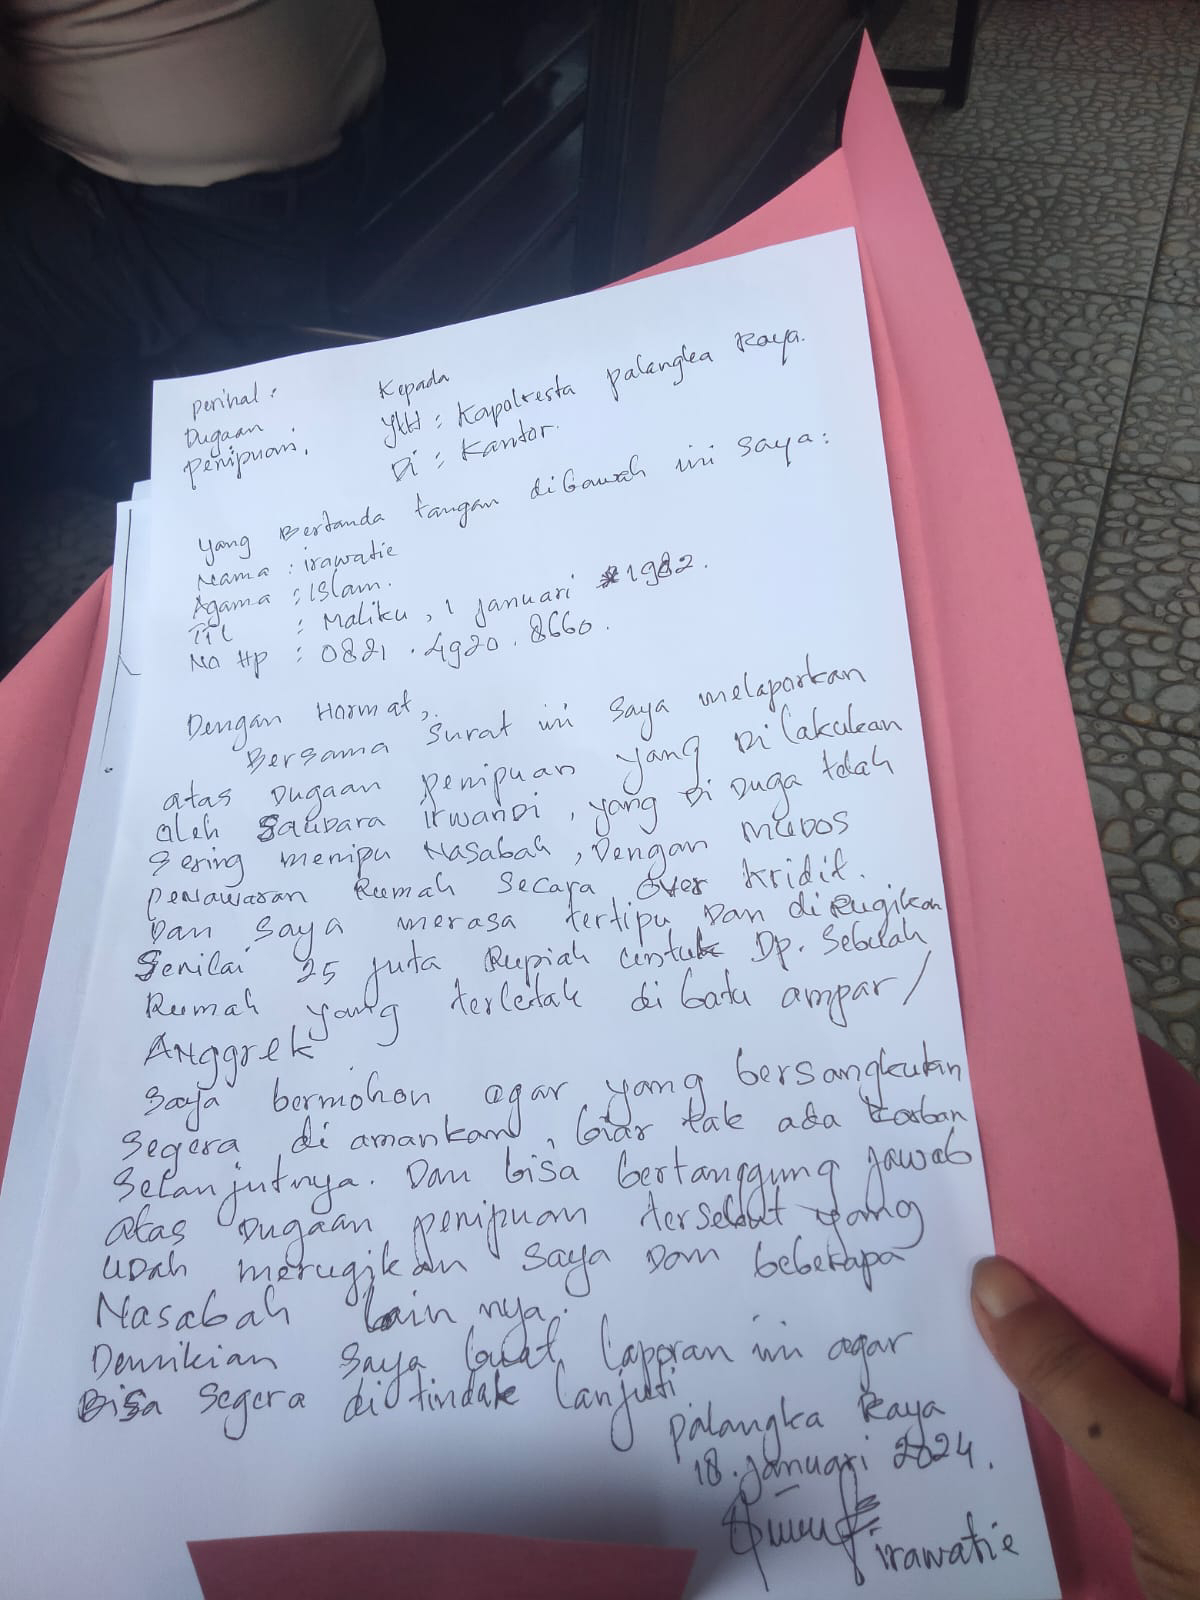 perihal :
Dugaan
penipuan.
Kepada
YtH : Kapolresta palangka Raya.
Di : Kantor.
yang Bertanda tangan dibawah ini saya :
Nama : irawatie
Agama : ISlam.
TTL : Maliku, 1 januari 1982.
No Hp : 0821 . 4920 . 8660 .
Dengan Hormat,.
Bersama surat ini saya melaporkan
atas Dugaan penipuan yang Dilakukan
oleh SauDara irwanDi, yang Di Duga telah
sering menipu Nasabah, Dengan MoDos
penawaran Rumah secara over kridit.
Dan saya merasa tertipu Dan dirugikan
Senilai 25 juta Rupiah untuk Dp. Sebuah
Rumah yang terletak di batu ampar /
ANggrek
saya bermohon agar yang bersangkutan
segera di amankan, biar tak ada korban
selanjutnya. Dan bisa bertanggung jawab
atas Dugaan penipuan tersebut yang
uDah merugikan saya Dan beberapa
Nasabah lain nya.
Demikian saya buat laporan ini agar
Bisa segera di tindak lanjuti
palangka Raya
18. januari 2024.
irawatie